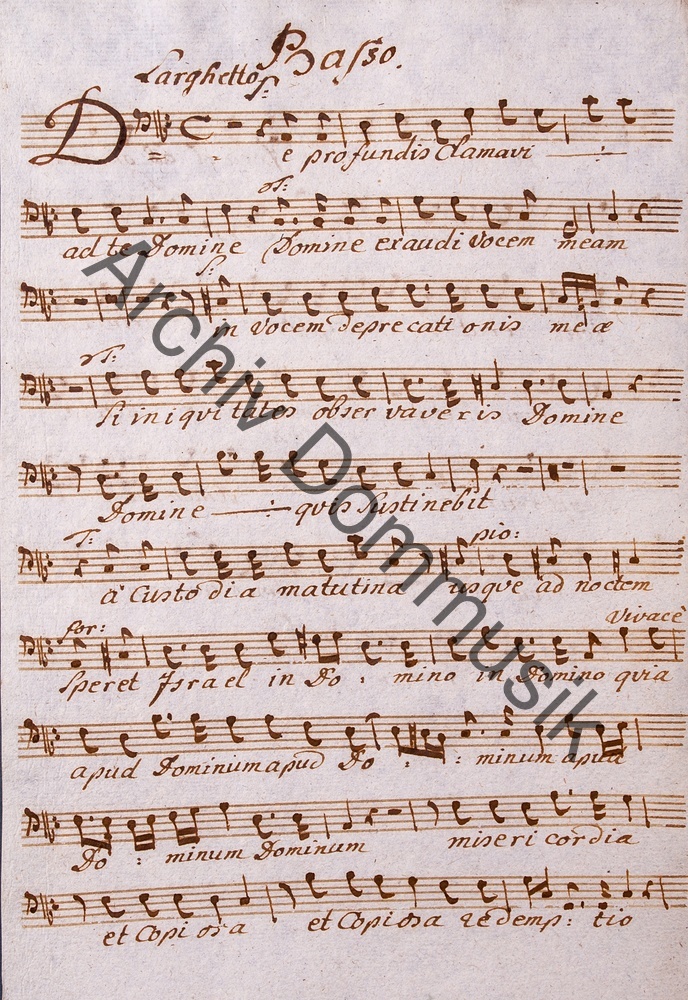 Basso.
Larghetto S:
De profundis Clamavi
T:
ad te Domine Domine exaudi Vocem meam
S:
in Vocem deprecati onis meæ
T:
Si iniqvi tates obser vaveris Domine
Domine qvis Sustinebit
T: pio:
à Custo dia matutina usqve ad noctem
for: Vivacè
Speret Jsrael in Do : mino in Domino qvia
apud Dominum apud Do : : minum apud
Do : minum Dominum miseri cordia
et Copi osa et Copiosa redemp: tio
Archiv Dommusik